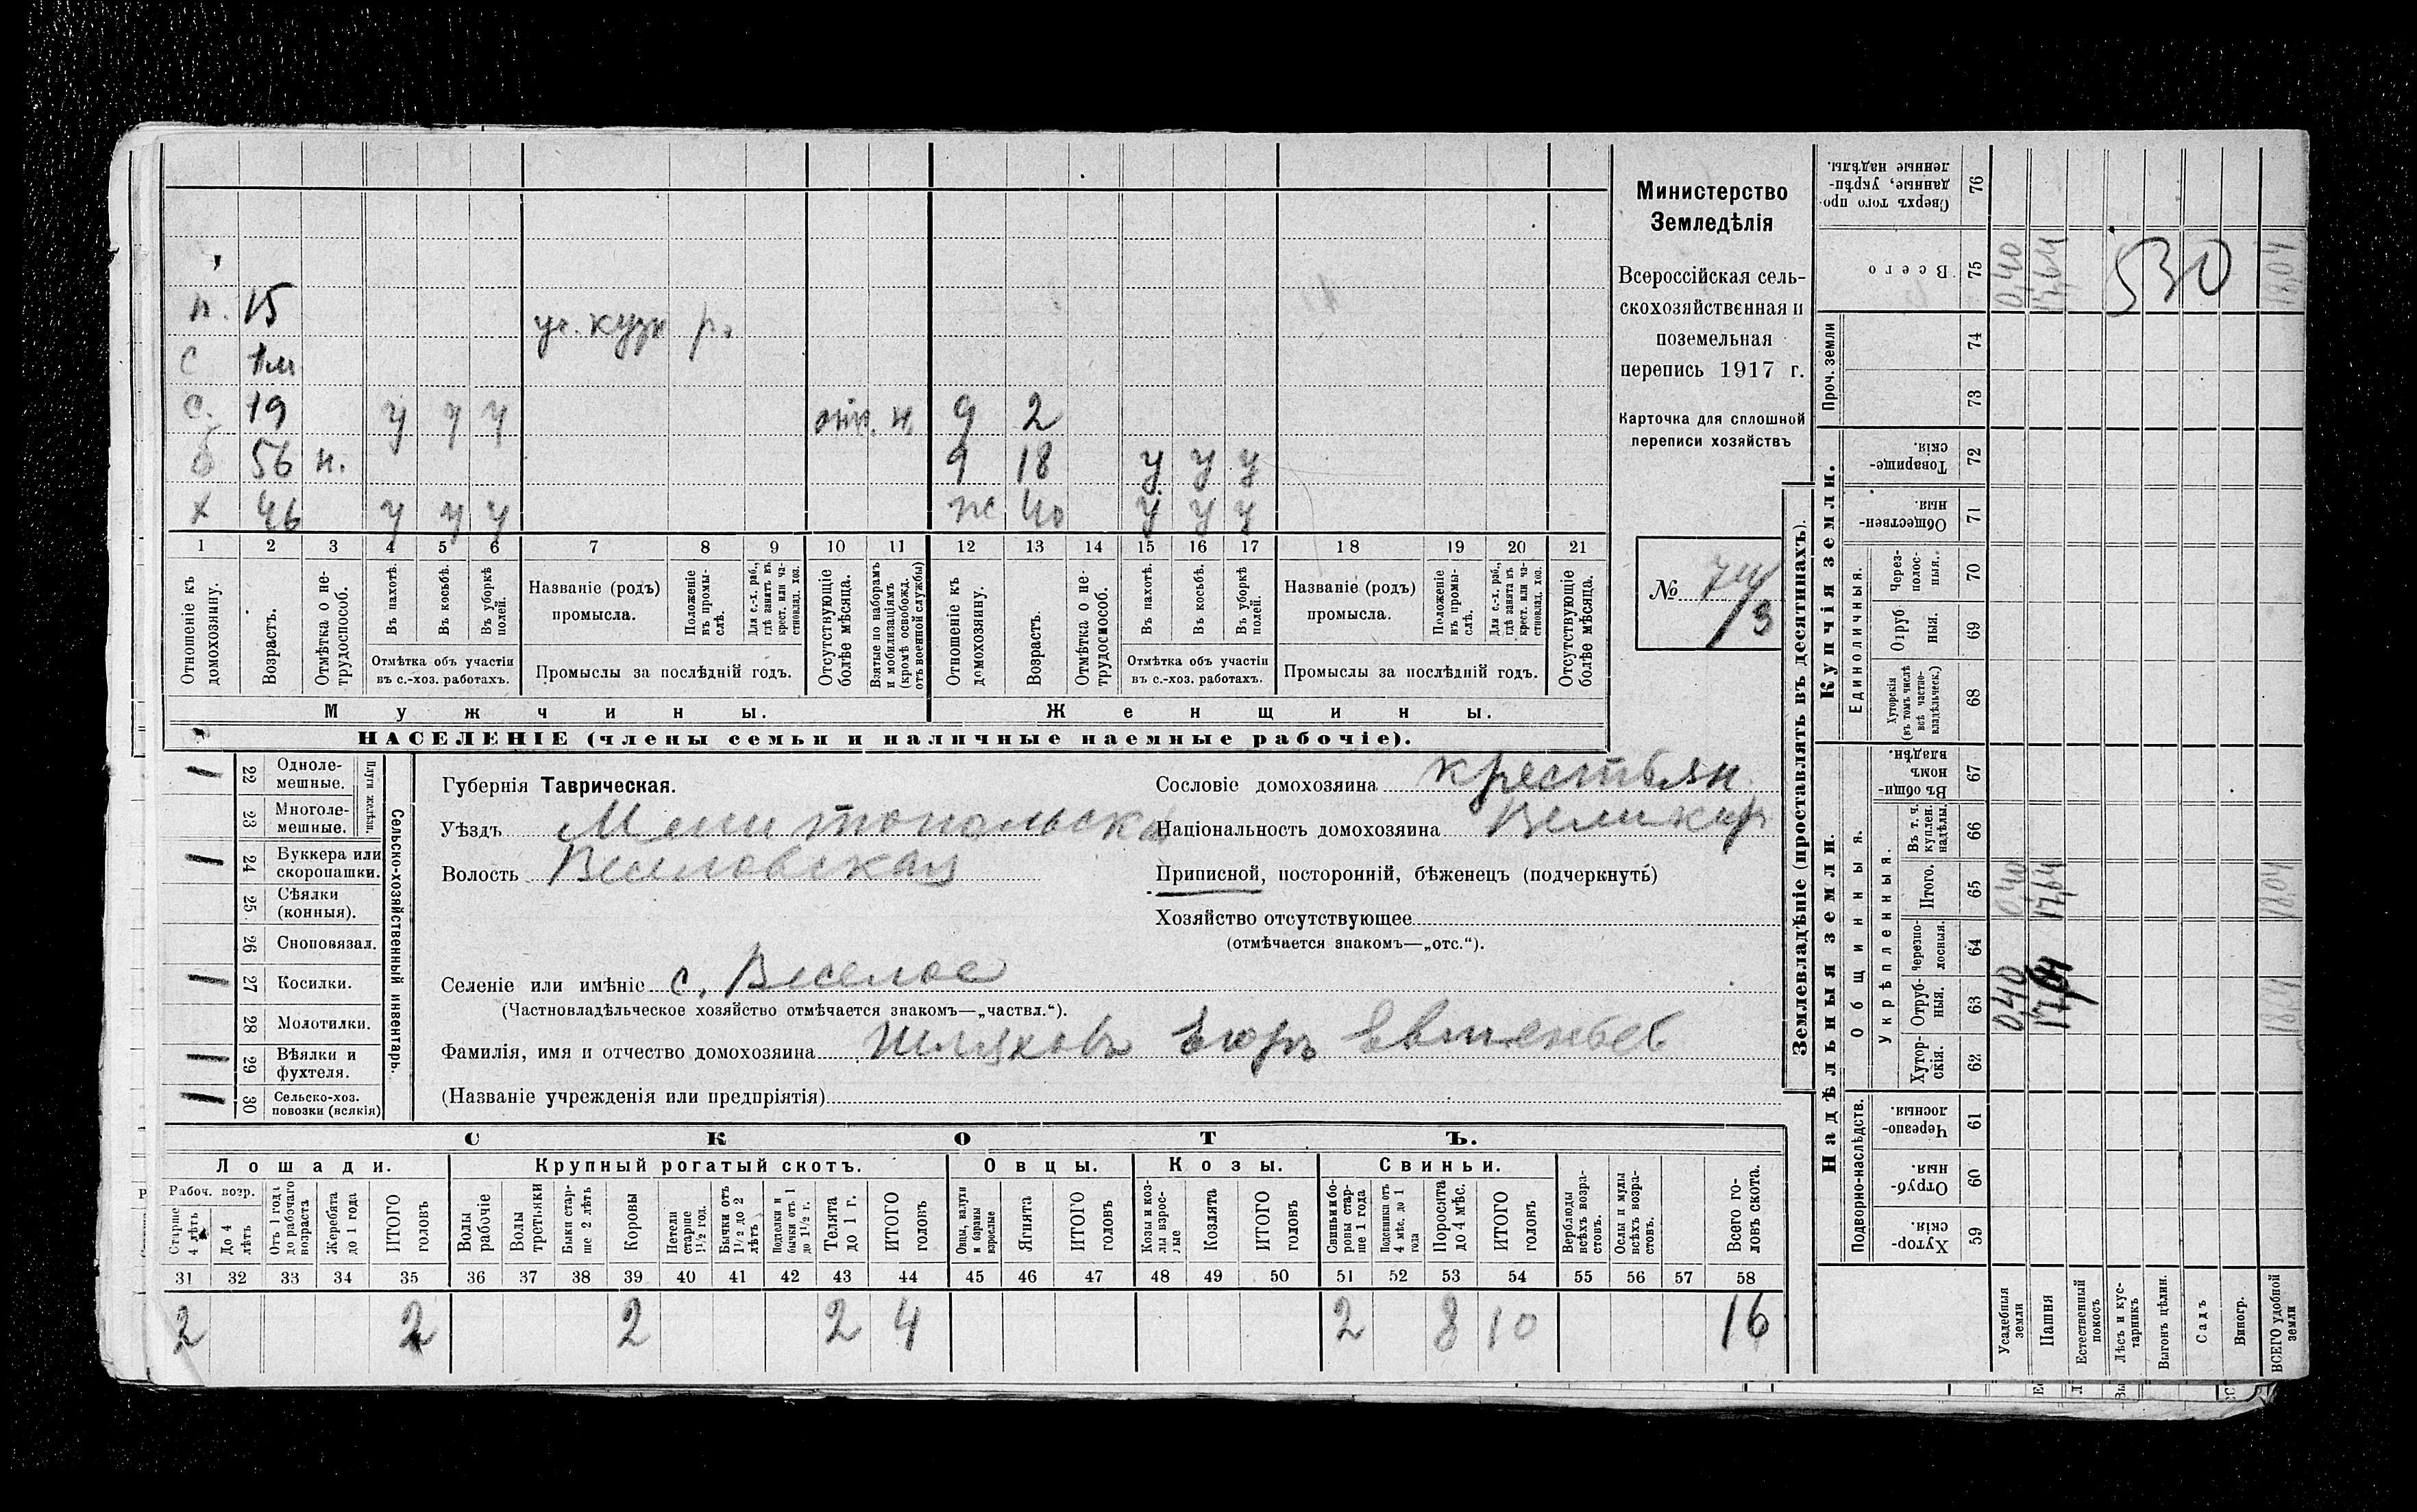 п. 15
уч. кузн р.
с 1 м
с. 19 у у у отп. н. д 2
б 56 н. д 18 у у у
х 46 у у у ж 40 у у у
1 2 3 4 5 6 7 8 9 10 11 12 13 14 15 16 17 18 19 20 21
Отношеніе къ домохозяину.
Возрастъ.
Отмѣтка о нетрудоспособ.
Въ пахотѣ.
Въ косьбѣ.
Въ уборкѣ полей.
Отмѣтка объ участіи въ с.-хоз. работахъ.
Названіе (родъ) промысла.
Положеніе въ промыслѣ.
Для с.-х. раб., гдѣ занятъ въ крест. или частновлад. хоз.
Промыслы за послѣдній годъ.
Отсутствующіе болѣе мѣсяца.
Взятые по наборамъ и мобилизаціямъ (кромѣ освобожд. отъ военной службы)
Отношеніе къ домохозяину.
Возрастъ.
Отмѣтка о нетрудоспособ.
Въ пахотѣ.
Въ косьбѣ.
Въ уборкѣ полей.
Отмѣтка объ участіи въ с.-хоз. работахъ.
Названіе (родъ) промысла.
Положеніе въ промыслѣ.
Для с.-х. раб., гдѣ занятъ въ крест. или частновлад. хоз.
Промыслы за послѣдній годъ.
Отсутствующіе болѣе мѣсяца.
Мужчины.
Женщины.
НАСЕЛЕНІЕ (члены семьи и наличные наемные рабочіе).
Министерство
Земледѣлія
Всероссійская сель-
скохозяйственная и
поземельная
перепись 1917 г.
Карточка для сплошной
переписи хозяйствъ
№ 74/3
Сельско-хозяйственный инвентарь.
Плуги желѣзн.
22 Одноле-
мешные.
23 Многоле-
мешные.
24 Буккера или
скоропашки.
25 Сѣялки
(конныя).
26 Сноповязал.
27 Косилки.
28 Молотилки.
29 Вѣялки и
фухтеля.
30 Сельско-хоз.
повозки (всякія)
Губернія Таврическая.
Уѣздъ Мелитопольска
Волость Веселовская
Селеніе или имѣніе с. Веселое
(Частновладѣльческое хозяйство отмѣчается знакомъ—„частвл.“).
Фамилія, имя и отчество домохозяина Шляховъ Егоръ
(Названіе учрежденія или предпріятія)
Сословіе домохозяина крестьян.
Національность домохозяина Великор
Приписной, посторонній, бѣженецъ (подчеркнуть)
Хозяйство отсутствующее
(отмѣчается знакомъ—„отс.“).
СКОТЪ.
Лошади. Крупный рогатый скотъ. Овцы. Козы. Свиньи.
Рабоч. возр.
Старше 4 лѣтъ
До 4 лѣтъ
Отъ 1 года до рабочаго возраста
Жеребята до 1 года
ИТОГО головъ
Волы рабочіе
Волы третьяки
Быки старше 2 лѣтъ
Коровы
Нетели старше 1 1/2 год.
Бычки отъ 1 1/2 до 2 лѣтъ
Подтелки и бычки отъ 1 до 1 1/2 г.
Телята до 1 г.
ИТОГО головъ
Овцы, валухи и бараны взрослые
Ягнята
ИТОГО головъ
Козы и козлы взрослые
Козлята
ИТОГО головъ
Свиньи и боровы старше 1 года
Подсвинки отъ 4 мѣс. до 1 года
Поросята до 4 мѣс.
ИТОГО головъ
Верблюды всѣхъ возрастовъ.
Ослы и мулы всѣхъ возрастовъ.
Всего головъ скота.
31 32 33 34 35 36 37 38 39 40 41 42 43 44 45 46 47 48 49 50 51 52 53 54 55 56 57 58
2 2 2 2 4 2 8 10 16
Землевладѣніе (проставлять въ десятинахъ).
Сверхъ того проданные, укрѣпленные надѣлы. 76
Всего 75 0,40 17,64 530 18,04
Проч. земли
74
73
Купчія земли.
Товарищескія. 72
Общественныя 71
Единоличныя.
Черезполосныя. 70
Отрубныя. 69
Хуторскія (въ томъ числѣ всѣ частновладѣльческ.) 68
Надѣльныя земли.
Общинныя.
Въ общинномъ владѣн. 67
Укрѣпленныя.
Въ т. ч. куплен. надѣлы. 66
Итого. 65 0,40 17,64 18,04
Черезполосныя. 64
Отрубныя. 63 0,40 17,64 18,04
Хуторскія. 62
Подворно-наслѣдств.
Черезполосныя. 61
Отрубныя. 60
Хуторскія. 59
Усадебныя земли
Пашня
Естественный покосъ
Лѣсъ и кустарникъ
Выгонъ цѣлин.
Садъ
Виногр.
ВСЕГО удобной земли